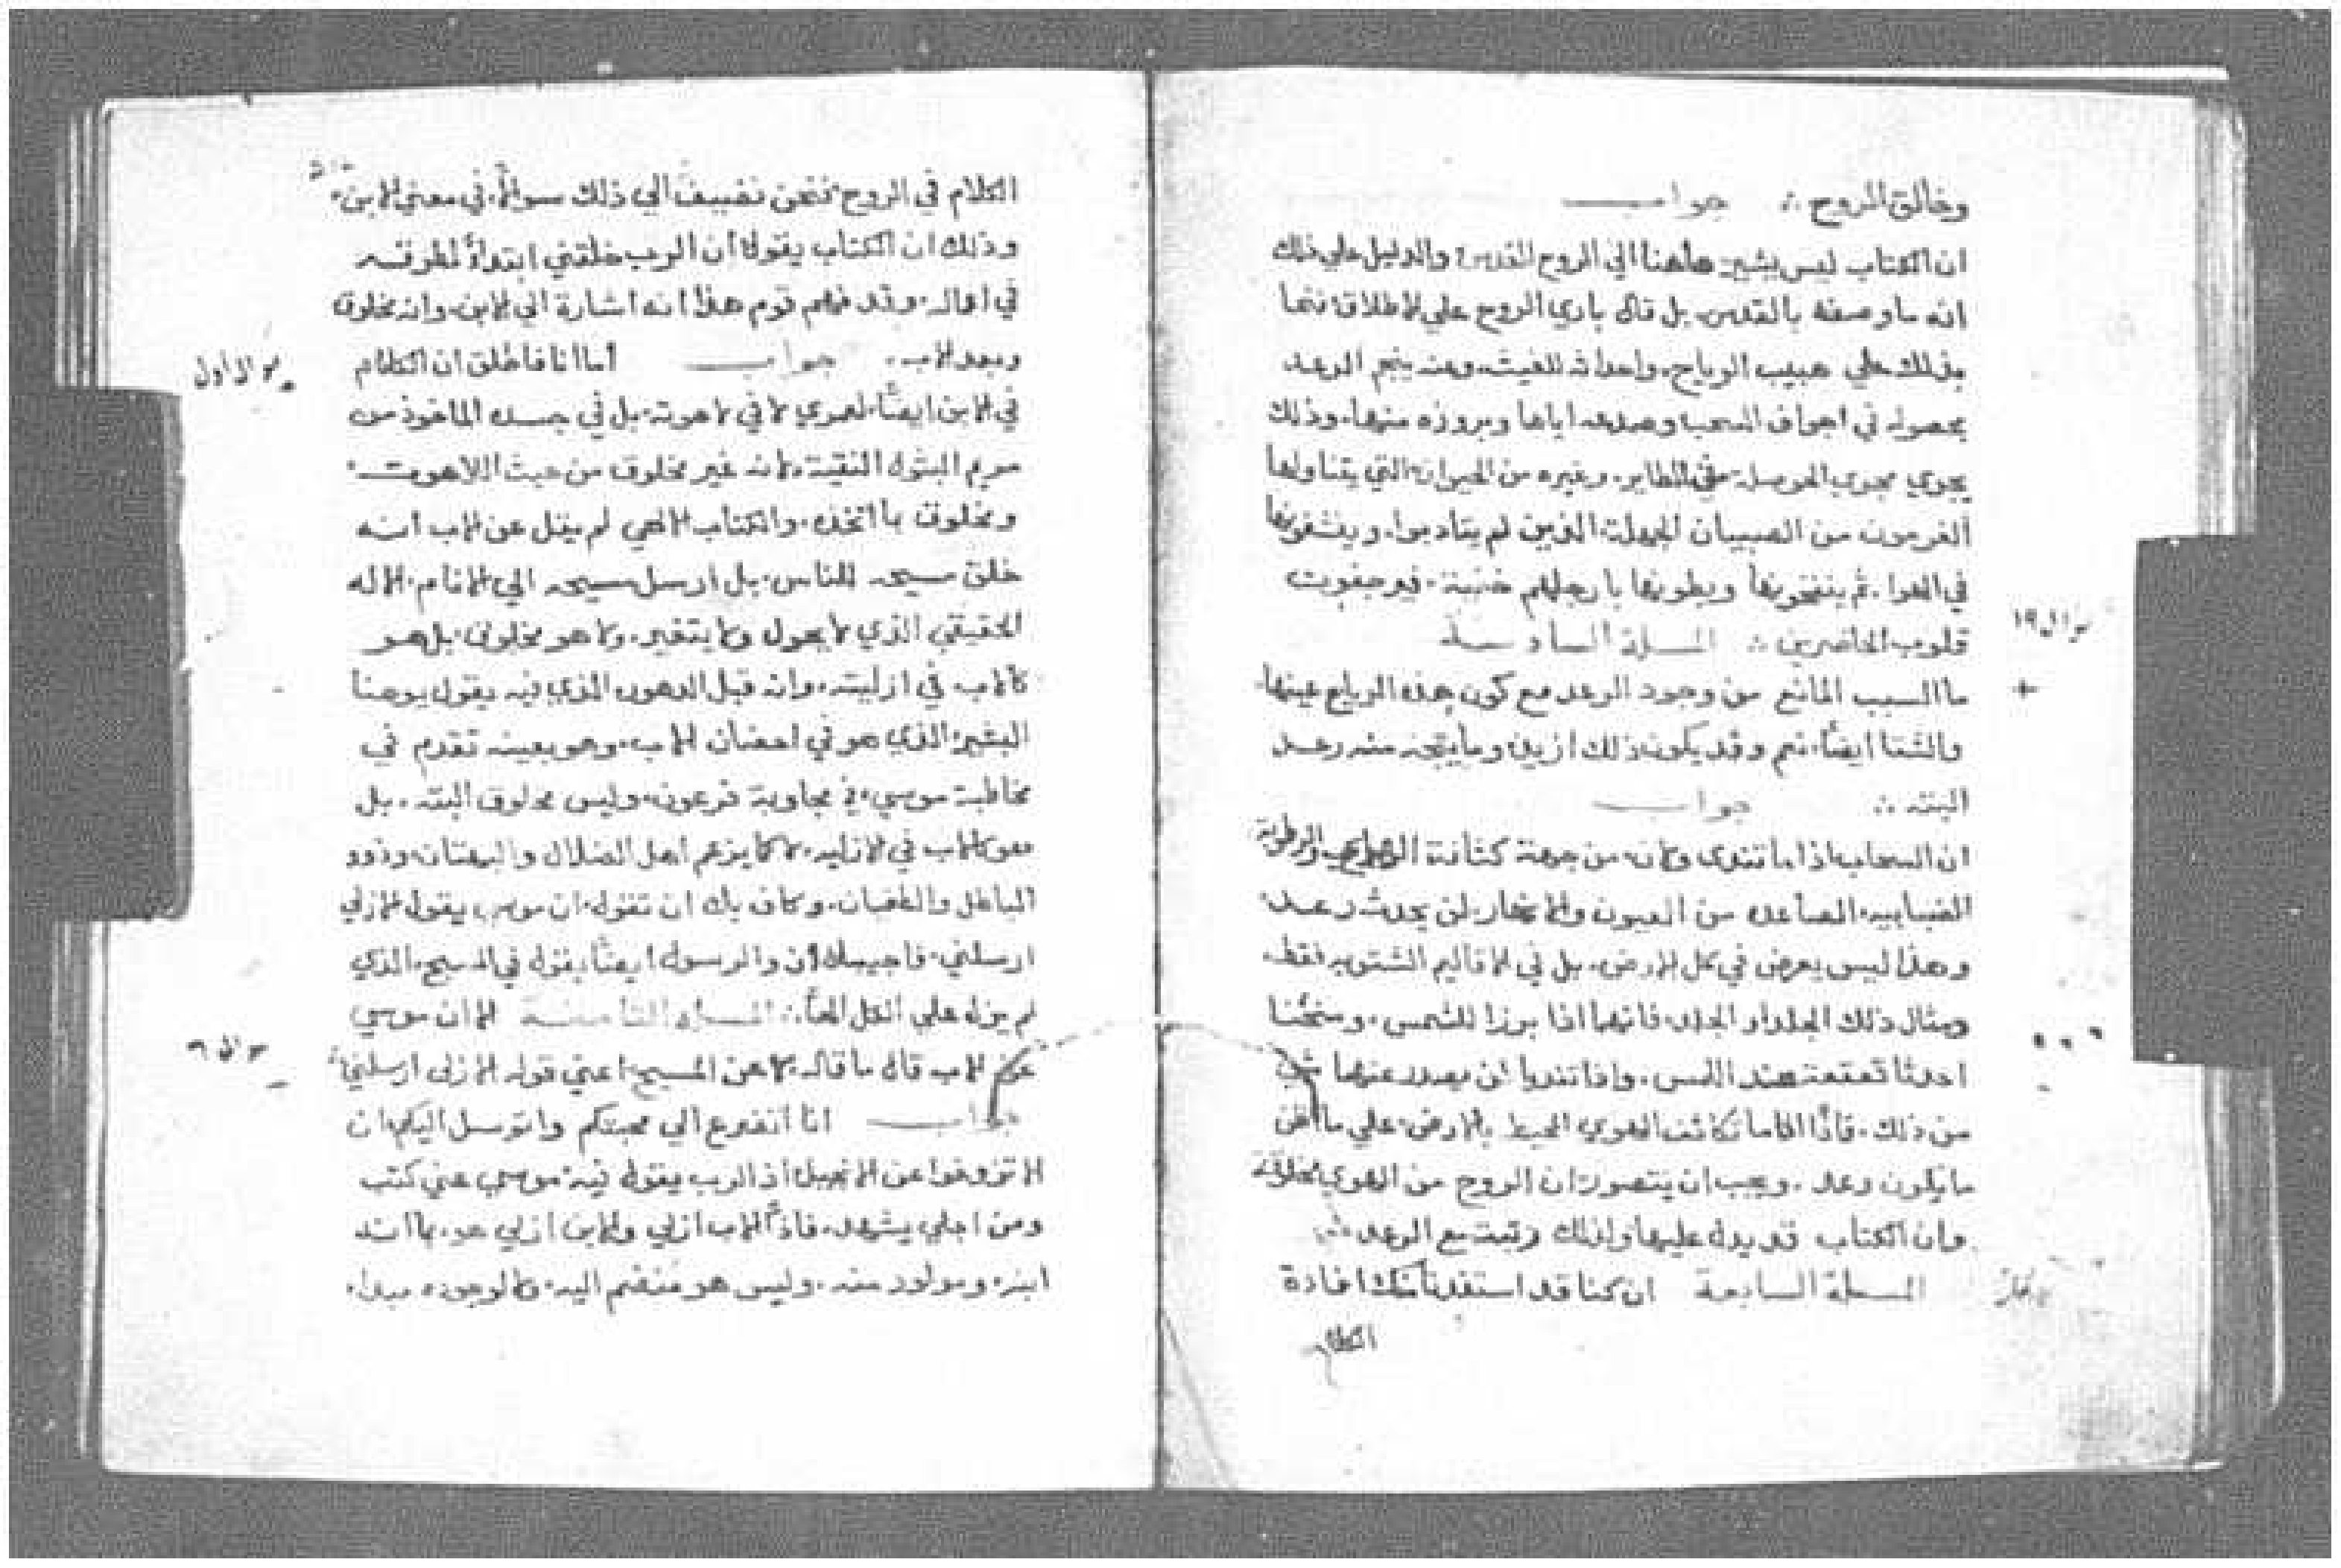 وخالق الروح ∴ جواب
ان الكتاب ليس يشير هاهنا الي الروح القدس والدليل علي ذلك
انه ما وصفه بالقدس بل قال باري الروح علي الاطلاق
بذلك علي هبيب الرياح واحداث الغيث ومنه ينجم الرعد
بحصوله في اجواف السحب وصدمه اياها وبروزه منها وذلك
يجري مجري الحوصلة الطاير وغيره من الحيوان التي يتناولها
من الصبيان الجهلة الذين لم يتادبوا
في الهوا ثم ينفخونها ويطونها بارجلهم فيرجفون
قلوب الحاضرين ∴ المسلة السادسة
سوال ١٩
ما السبب المانع من وجود الرعد مع كون هذه الرياح عينها
والشتا ايضًا نعم وقد يكون ذلك ازيد وما ينتج منه رعد
البته ∴ جواب
ان السحاب اذا ما تندى من جهة كثافة والرطوبة
الضبابيه الصاعده من العيون والانهار لن يحدث رعد
وهذا ليس يعرض في كل الارض بل في الاقاليم الشتويه فقط
ومثال ذلك الجلد او الجلد فانهما اذا برزا للشمس وسخنا
احدثا قعقعة عند اللمس واذا تنديا لن يصدر عنهما
من ذلك فاذًا تكاثف الهوي المحيط بالارض علي ما اظن
ما يكون رعد ويجب ان يتصور ان الروح من الهوي مخلوقة
وان الكتاب قد يدل عليها ولذلك رتبت مع الرعد
المسلة السابعة ان كنا قد استفدنا منك افادة
الكلام
الكلام في الروح فنحن نضيف الي ذلك سوالًا في معني الابن
وذلك ان الكتاب يقول ان الرب خلقني ابتداءً لطرقه
في اعماله وقد فهم قوم هذا انه اشارة الي الابن وانه مخلوق
وبعد الاب جواب اما انا فاطلق ان الكلام
سوال اول
في الابن ايضًا لعمري لا في لاهوته بل في جسده الماخوذ من
مريم البتول النقية لانه غير مخلوق من حيث اللاهوت
ومخلوق بما اتخذه والكتاب الالهي لم يقل عن الاب انه
خلق مسيحه للناس بل ارسل مسيحه الي الانام الاله
الحقيقي الذي لا يحول ولا يتغير ولا هو مخلوق بل هو
كالاب في ازليته وانه قبل الدهور الذي فيه يقول يوحنا
البشير الذي هو في احضان الاب وهو بعينه تقدم في
مخاطبة موسي في مجاوبة فرعون وليس مخلوق البته بل
هو كالاب في الازليه لا كما يزعم اهل الضلال والبهتان وذوو
الباطل والطغيان وكاني بك ان تقول ان موسي يقول الازلي
ارسلني فاجيبك ان والرسول ايضًا يقول في المسيح الذي
لم يزل علي الكل الهًا ∴ المسلة الثامنة الا ان موسي
سوال
عن الاب قال ما قاله لا عن المسيح اعني قوله الازلي ارسلني
جواب انا اتضرع الي محبتكم واتوسل اليكم ان
لا تزوغوا عن الانجيل اذ الرب يقول فيه موسي عني كتب
ومن اجلي يشهد فاذًا الاب ازلي والابن ازلي هو بما انه
ابنه ومولود منه وليس هو منضم اليه ولا لوجوده مبدا